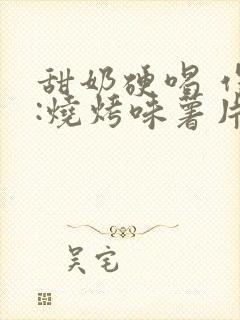 甜奶硬唱
:燒烤味薯片
吴宅